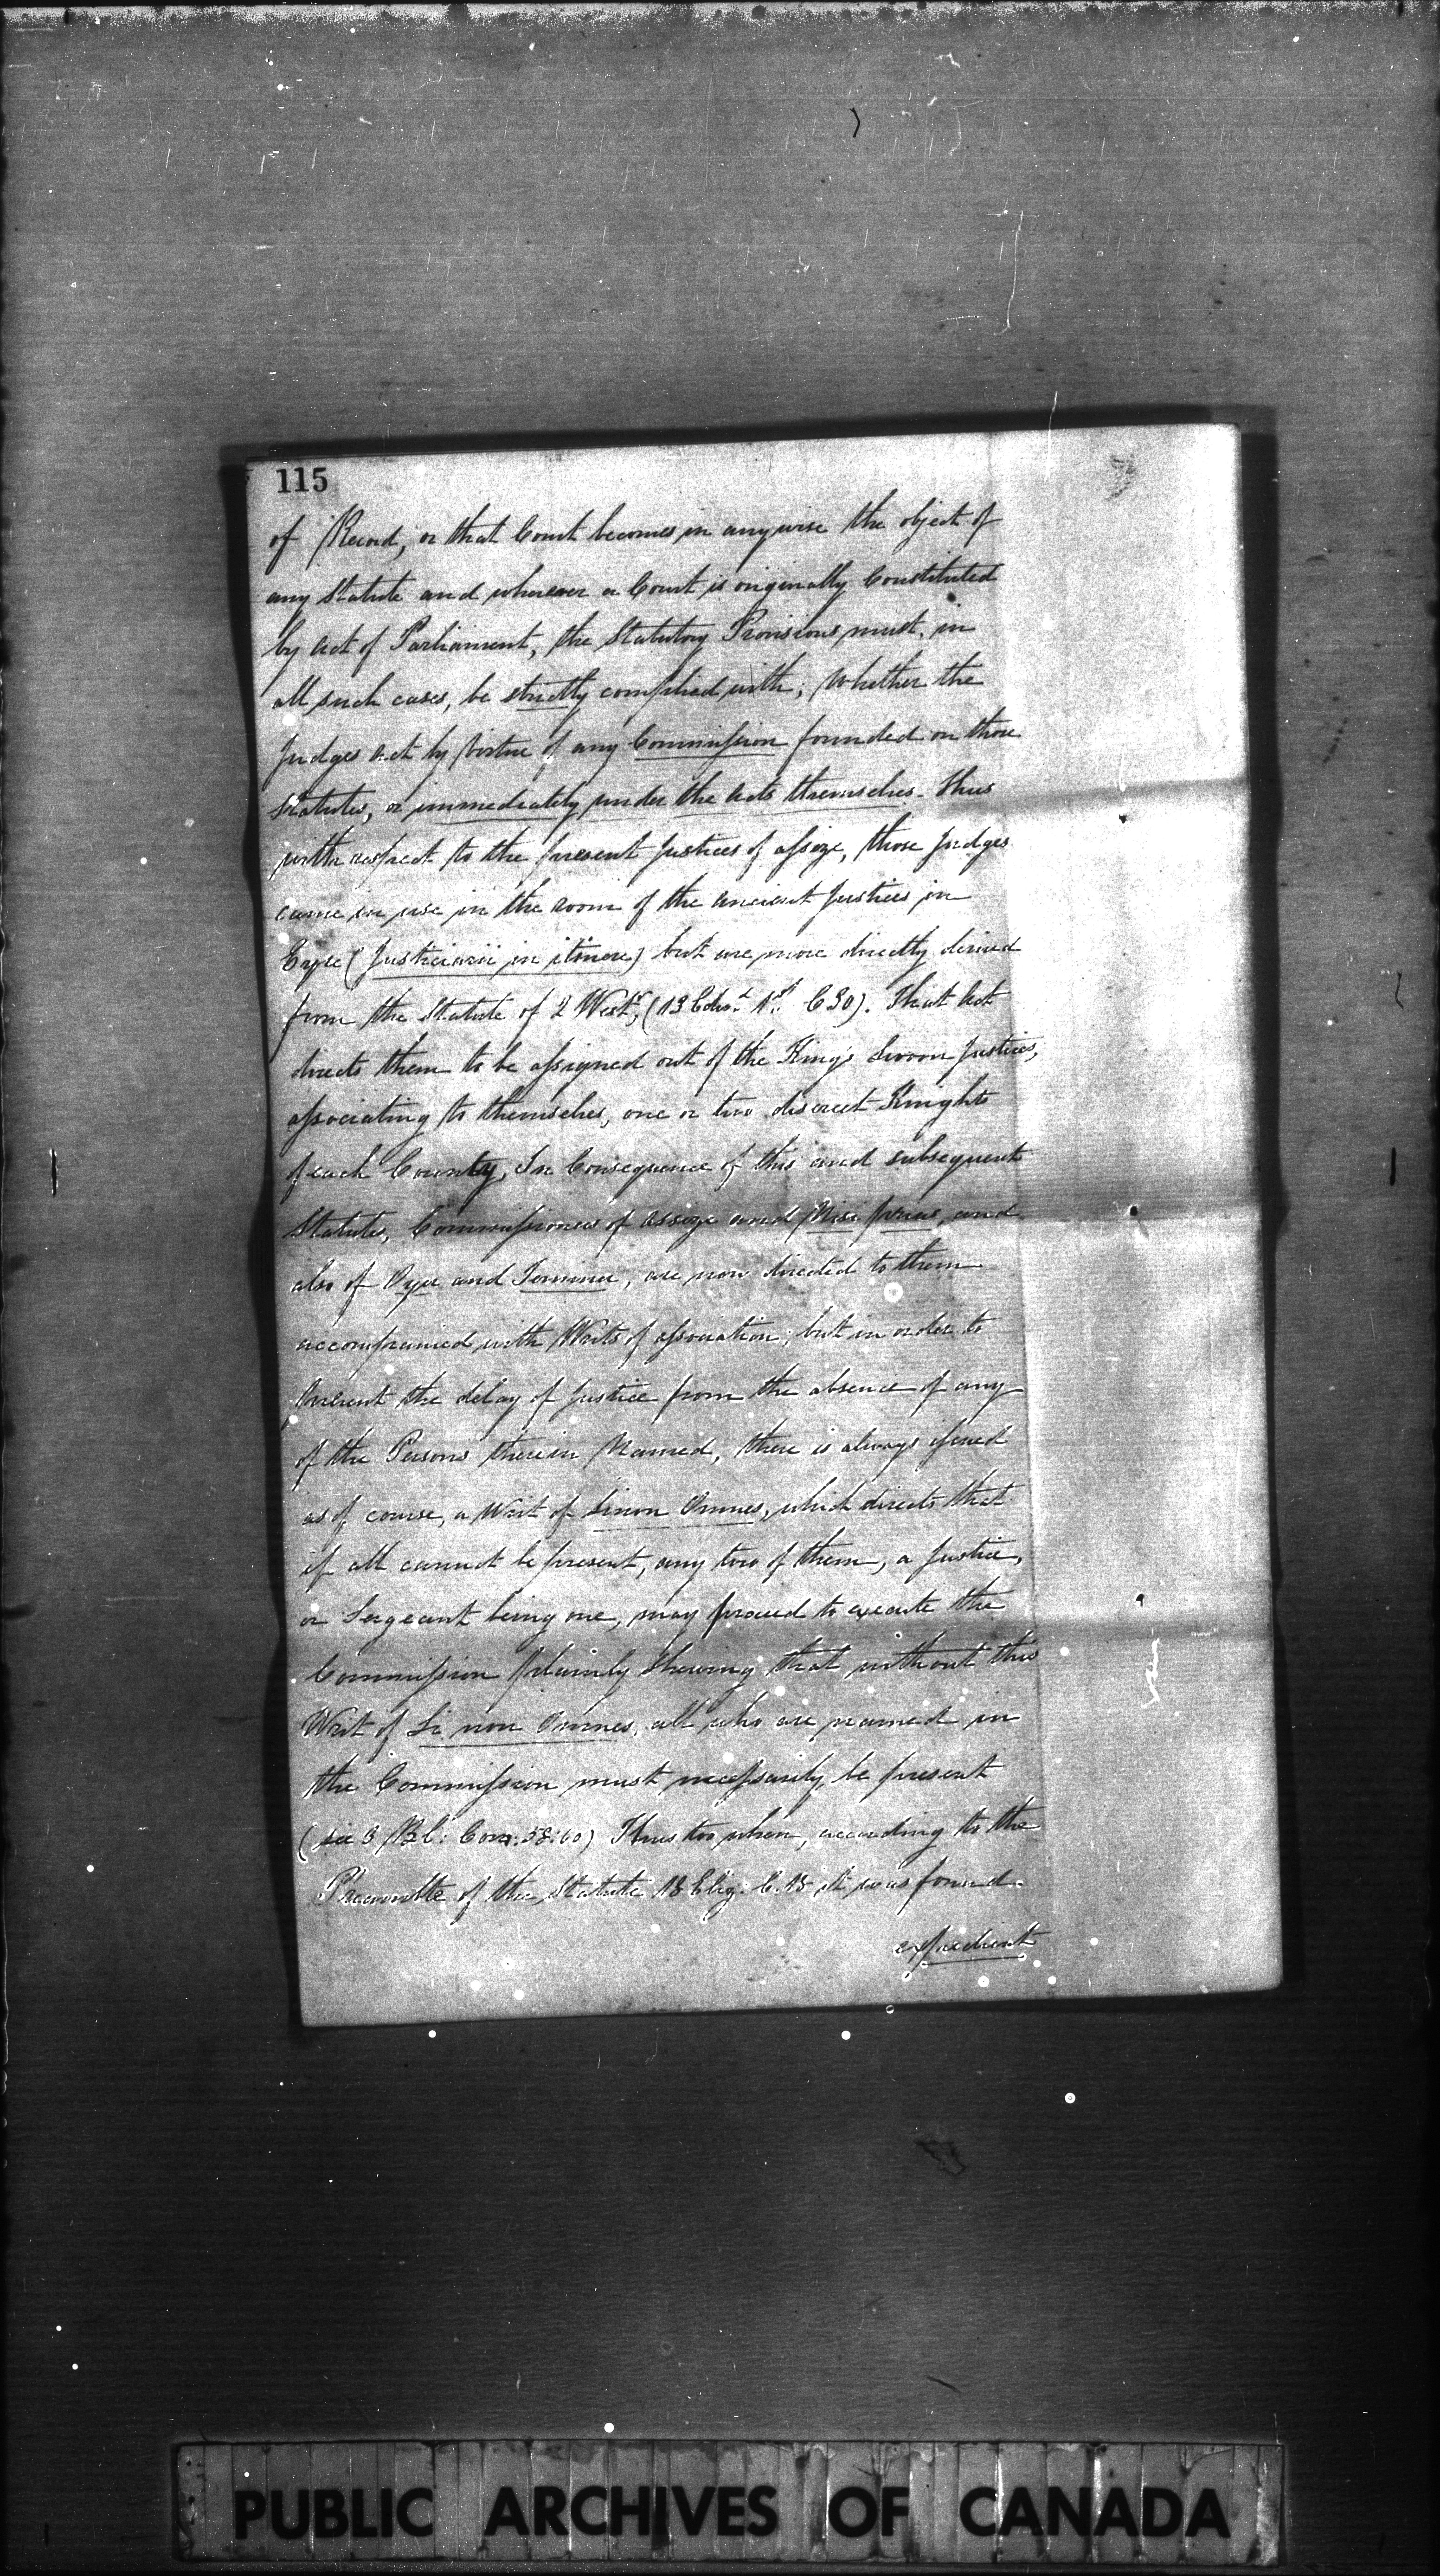 115
of Record, or that Court becomes in anywise the object of
any Statute and wherever a Court is originally Constituted
by Act of Parliament, the Statutory Provisions must, in
all such cases, be strictly complied with; Whether the
Judges act by virtue of any Commission founded on those
Statutes, or immediately under the Acts themselves. Thus
with respect to the present Justices of Assize, those Judges
came in use in the room of the ancient Justices in
Eyre (Justiciarii in itinere) but are more directly derived
from the Statute of 2 Westr, (13 Edwd. 1st. C 30). That Act
directs them to be assigned out of the King's Sworn Justices,
associating to themselves, one or two discreet Knights
of each County, In Consequence of this and subsequent
Statutes, Commissioners of Assize and Nisi prius, and
also of Oyer and Terminer, are now directed to them
accompanied with Writs of Association; but in order to
prevent the delay of Justice from the absence of any
of the Persons therein Named, there is always issued
as of course, a Writ of Sinon Omnes, which directs that
if all cannot be present, any two of them, a Justice,
or Sergeant being one, may proceed to execute the
Commission plainly Shewing that without this
Writ of Si non Omnes, all who are named in
the Commission must necessarily be present
(see 3 Bl: Com: 58:60) Thus too when, according to the
Preamble of the Statute 18 Eliz: C. 18 it was found
expedient
PUBLIC ARCHIVES OF CANADA